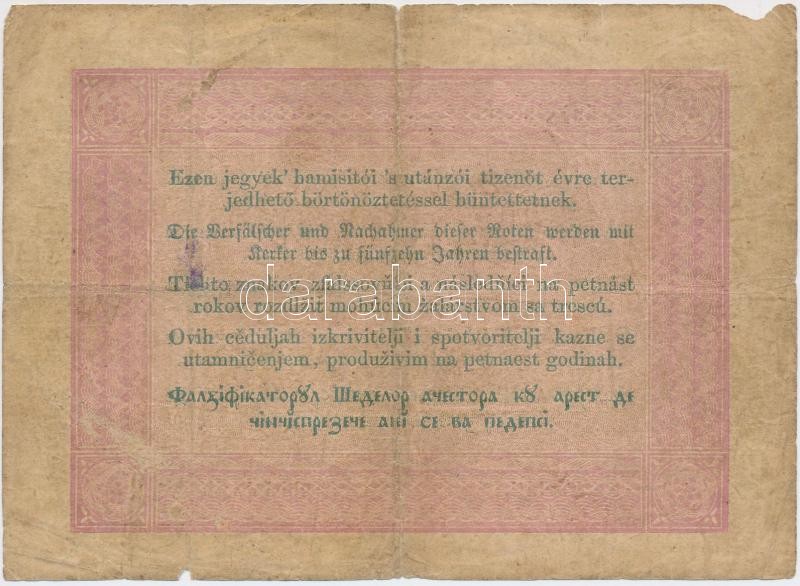 Ezen jegyek' hamisitói 's utánzói tizenöt évre ter-
jedhető börtönöztetéssel büntettetnek.
Die Verfälscher und Nachahmer dieser Noten werden mit
Kerker bis zu fünfzehn Jahren bestraft.
a následňíci na petnást
rokov žalárstvom sa trescú.
darabanth
Ovih cěduljah izkrivitelji i spotvoritelji kazne se
utamničenjem, produživim na petnaest godinah.
Фалꙁіфікаторꙋл Шеделор ачестора кꙋ арест де
чінчіспрезече ані се ва педепсі.